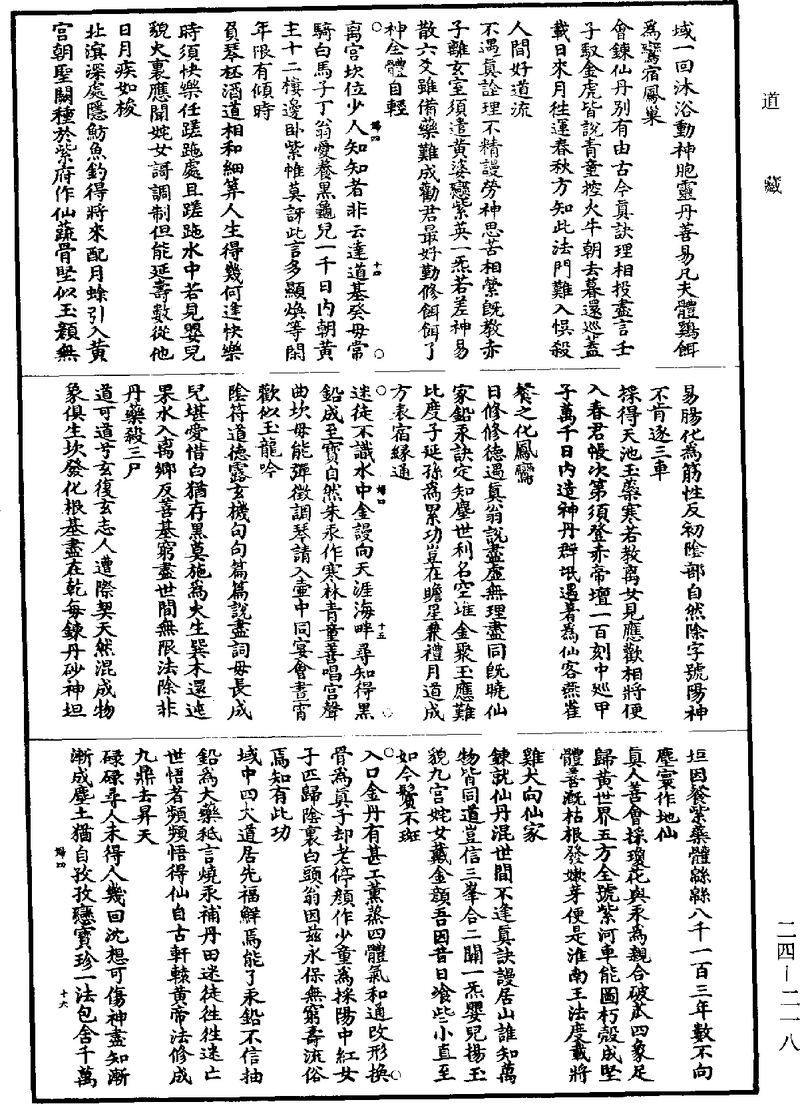 道藏
域一回沐浴動神胞靈丹善易凡夫體鷄餌
為鸞宿鳳巢
會鍊仙丹別有由古今真訣理相投盡言壬
子馭金虎皆說青童控火牛朝去暮還巡蓋
載日來月徃運春秋方知此法門難入悞殺
人間好道流
不遇真詮理不精謾勞神思苦相縈既教赤
子離玄室須遣黃婆戀紫英一炁若差神易
散六爻雖備藥難成勸君最好勤修餌餌了
神全體自輕
離宮坎位少人知知者非云達道基癸毋常
騎白馬子丁翁愛養黑龜兒一千日內朝黃
主十二樓邊卧紫帷莫訝此言多顯煥等閑
年限有傾時
負琴柸酒道相和細筭人生得幾何逢快樂
時須快樂任蹉跎處且蹉跎水中若見嬰兒
貌火裏應聞姹女謌調制但能延壽數從他
日月疾如梭
北濵深處隱魴魚釣得將來配月蜍引入黃
宮朝聖闕種於紫府作仙蔬骨堅似玉顏無
易腸化為筋性反初陰部自然除字號陽神
不肯逐三車
採得天池玉蘂寒若教离女見應歡相將便
入春君帳次第須登赤帝壇一百刻中廵甲
子萬千日內造神丹群氓遇著為仙客燕雀
餐之化鳳鸞
日修修德遇真翁說盡虛無理盡同既曉仙
家鉛汞訣定知塵世利名空堆金聚玉應難
比度子延孫為累功豈在瞻星兼禮月道成
方表宿緣通
迷徒不識水中金謾向天涯海畔尋知得黑
鉛成至寶自然朱汞作寒林青童善唱宮聲
曲坎毋能彈徵調琴請入壷中同宴會晝宵
歡似玉龍吟
陰符道德露玄機句句篇篇說盡詞毋長成
兒堪愛惜白猶存黑莫施為火生巽木還連
果水入离鄉反喜基窮盡世間無限法除非
丹藥殺三尸
道可道兮玄復玄志人遭際契天然混成物
象俱生坎發化根基盡在乾每鍊丹砂神坦
坦因餐紫藥體緜緜八千一百三年數不向
塵寰作地仙
真人善會採瓊花與汞為親合破苽四象足
歸黃世界五方全號紫河車能圖朽殼成堅
體善溉枯根發嫩芽便是淮南王法度載將
雞犬向仙家
鍊就仙丹混世間不逢真訣謾居山誰知萬
物皆同道豈信三峯合二關一炁嬰兒揚玉
貌九宮姹女戴金顏吾因昔日飡些小直至
如今鬢不斑
入口金丹有甚工薰蒸四體氣和通改形換
骨為真子却老停顏作少童為採陽中紅女
子匹歸陰裏白頭翁因茲永保無窮壽流俗
焉知有此功
域中四大道居先福鮮焉能了汞鉛不信抽
鉛為大藥秪言燒汞補丹田迷徒徃徃迷亡
世悟者頻頻悟得仙自古軒轅黃帝法修成
九鼎去昇天
碌碌尋人未得人幾回沈想可傷神盡知漸
漸成塵土猶自孜孜戀寳珍一法包含千萬
婦四
十四
婦四
十五
婦四
十六
二四—二一八